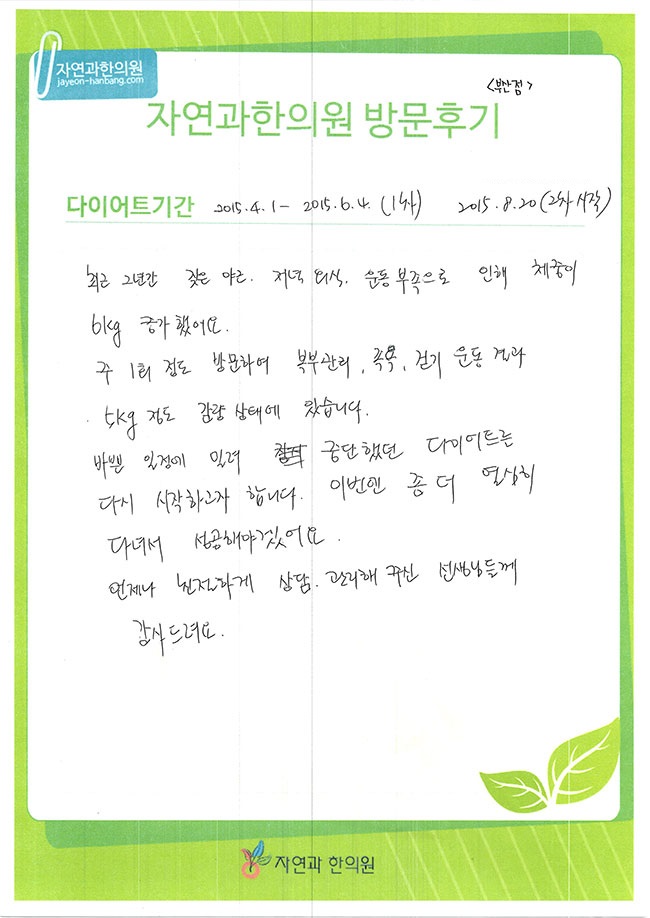 자연과한의원
jayeon-hanbang.com
<부산점>
자연과한의원 방문후기
다이어트기간 2015.4.1 - 2015.6.4. (1차) 2015.8.20 (2차 시작)
최근 2년간 잦은 야근. 저녁 외식. 운동부족으로 인해 체중이
6kg 증가했어요.
주 1회 정도 방문하여 복부관리, 족욕, 걷기 운동 결과
5kg 정도 감량 상태에 왔습니다.
바쁜 일정에 밀려 중단했던 다이어트를
다시 시작하고자 합니다. 이번엔 좀 더 열심히
다녀서 성공해야겠어요.
언제나 친절하게 상담. 관리해 주신 선생님들께
감사드려요.
자연과 한의원